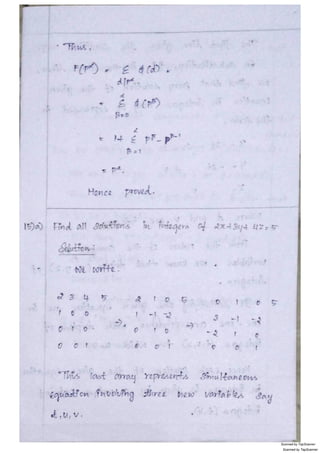 Thus,
F(p^α) = Σ φ(d).
d|p^α
= Σ^α φ(p^β)
β=0
= 1+ Σ^α p^β - p^β-1
β=1
= p^α.
Hence proved.
15)a) Find all solutions in integers of 2x+3y+4z=5
Solution:
We write.
2 3 4 5    2 1 0 5    0 1 0 5
1 0 0    1 -1 -2    3 -1 -2
0 1 0 ⇒ 0 1 0 ⇒ -2 1 0
0 0 1    0 0 1    0 0 1
This last array represents simultaneous
equation involving three new variables say
t, u, v.
Scanned by TapScanner
Scanned by TapScanner